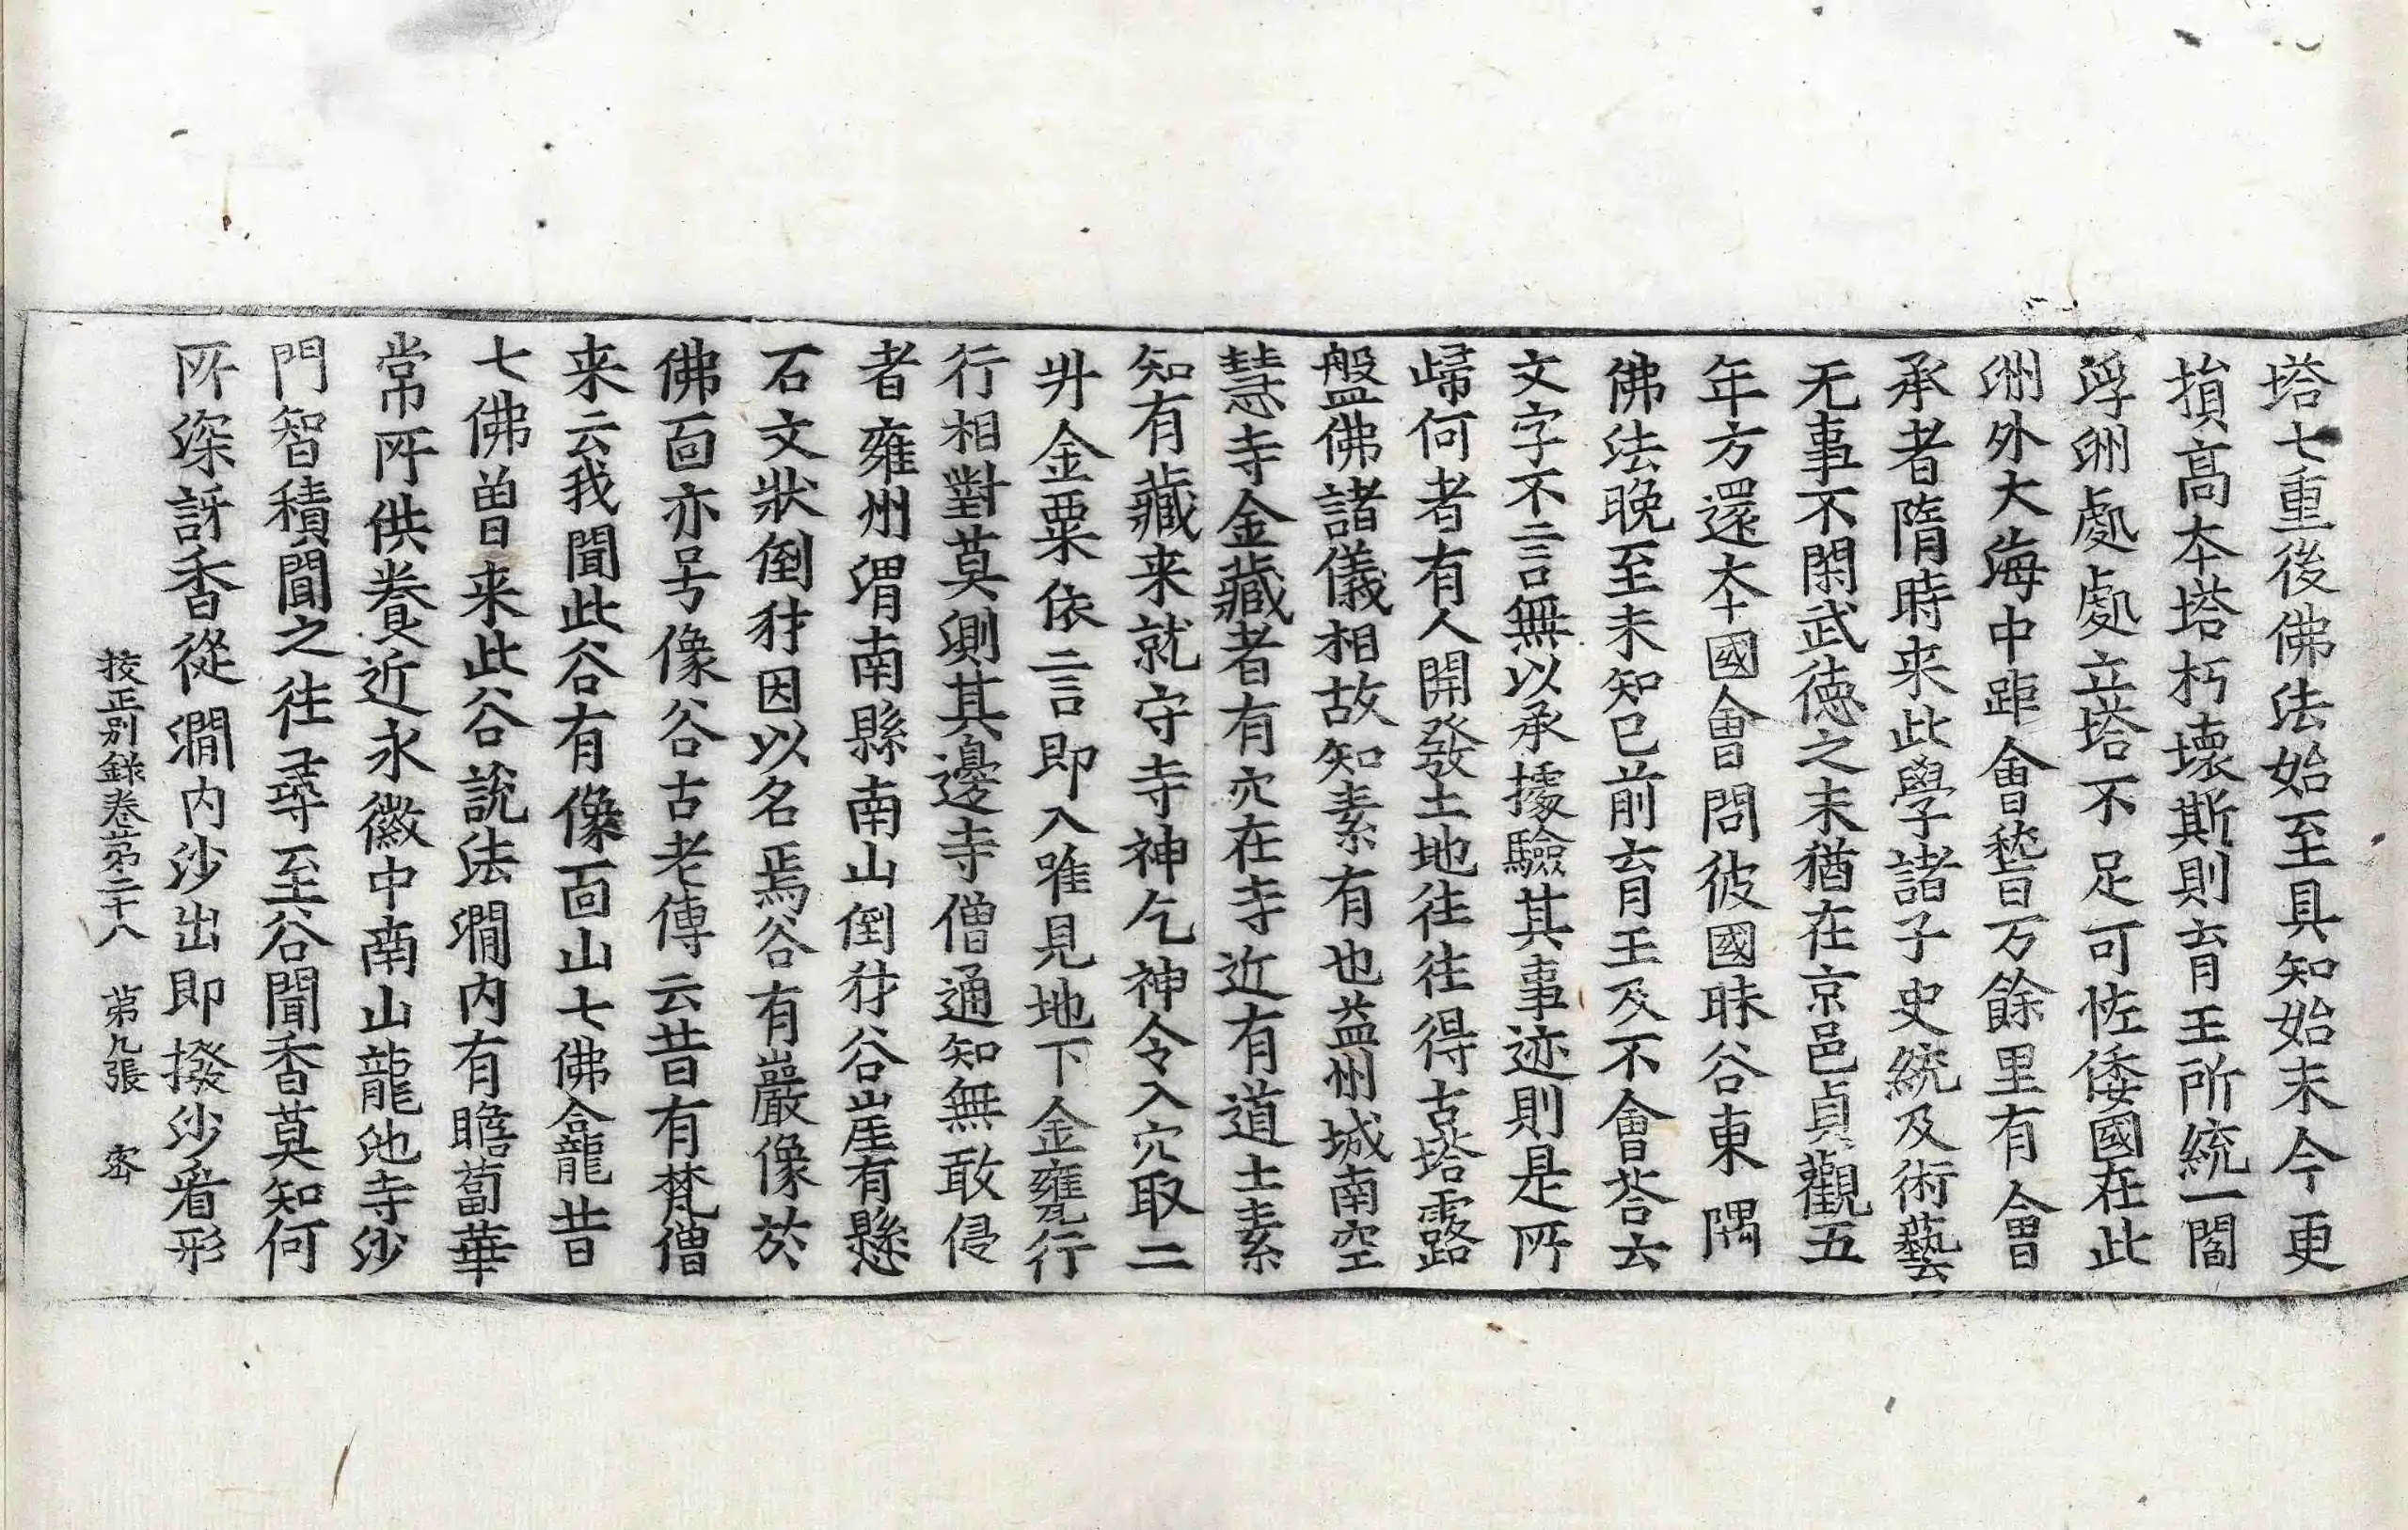 塔七重後佛法始至具知始末今更
損髙本塔朽壞斯則育王所統一閻
浮洲處處立塔不足可恠倭國在此
洲外大海中距會嵇万餘里有會
承者隋時来此學諸子史統及術藝
无事不閑武德之末猶在京邑貞觀五
年方還本國會問彼國昧谷東隅
佛法晚至未知已前育王及不會荅云
文字不言無以承據驗其事迹則是所
歸何者有人開發土地往往得古塔露
盤佛諸儀相故知素有也益州城南空
慧寺金藏者有穴在寺近有道士素
知有藏来就守寺神乞神令入穴取二
升金粟依言即入唯見地下金甕行
行相對莫測其邊寺僧通知無敢侵
者雍州渭南縣南山倒犲谷崖有懸
石文狀倒犲因以名焉谷有巖像於
佛面亦号像谷古老傳云昔有梵僧
来云我聞此谷有像面山七佛龕昔
七佛曽来此谷說法澗内有瞻蔔華
常所供養近永徽中南山龍池寺沙
門智積聞之往尋至谷聞香莫知何
所深訝香從澗内沙出即撥沙看形
挍正别錄卷苐二十八　苐九張　宻